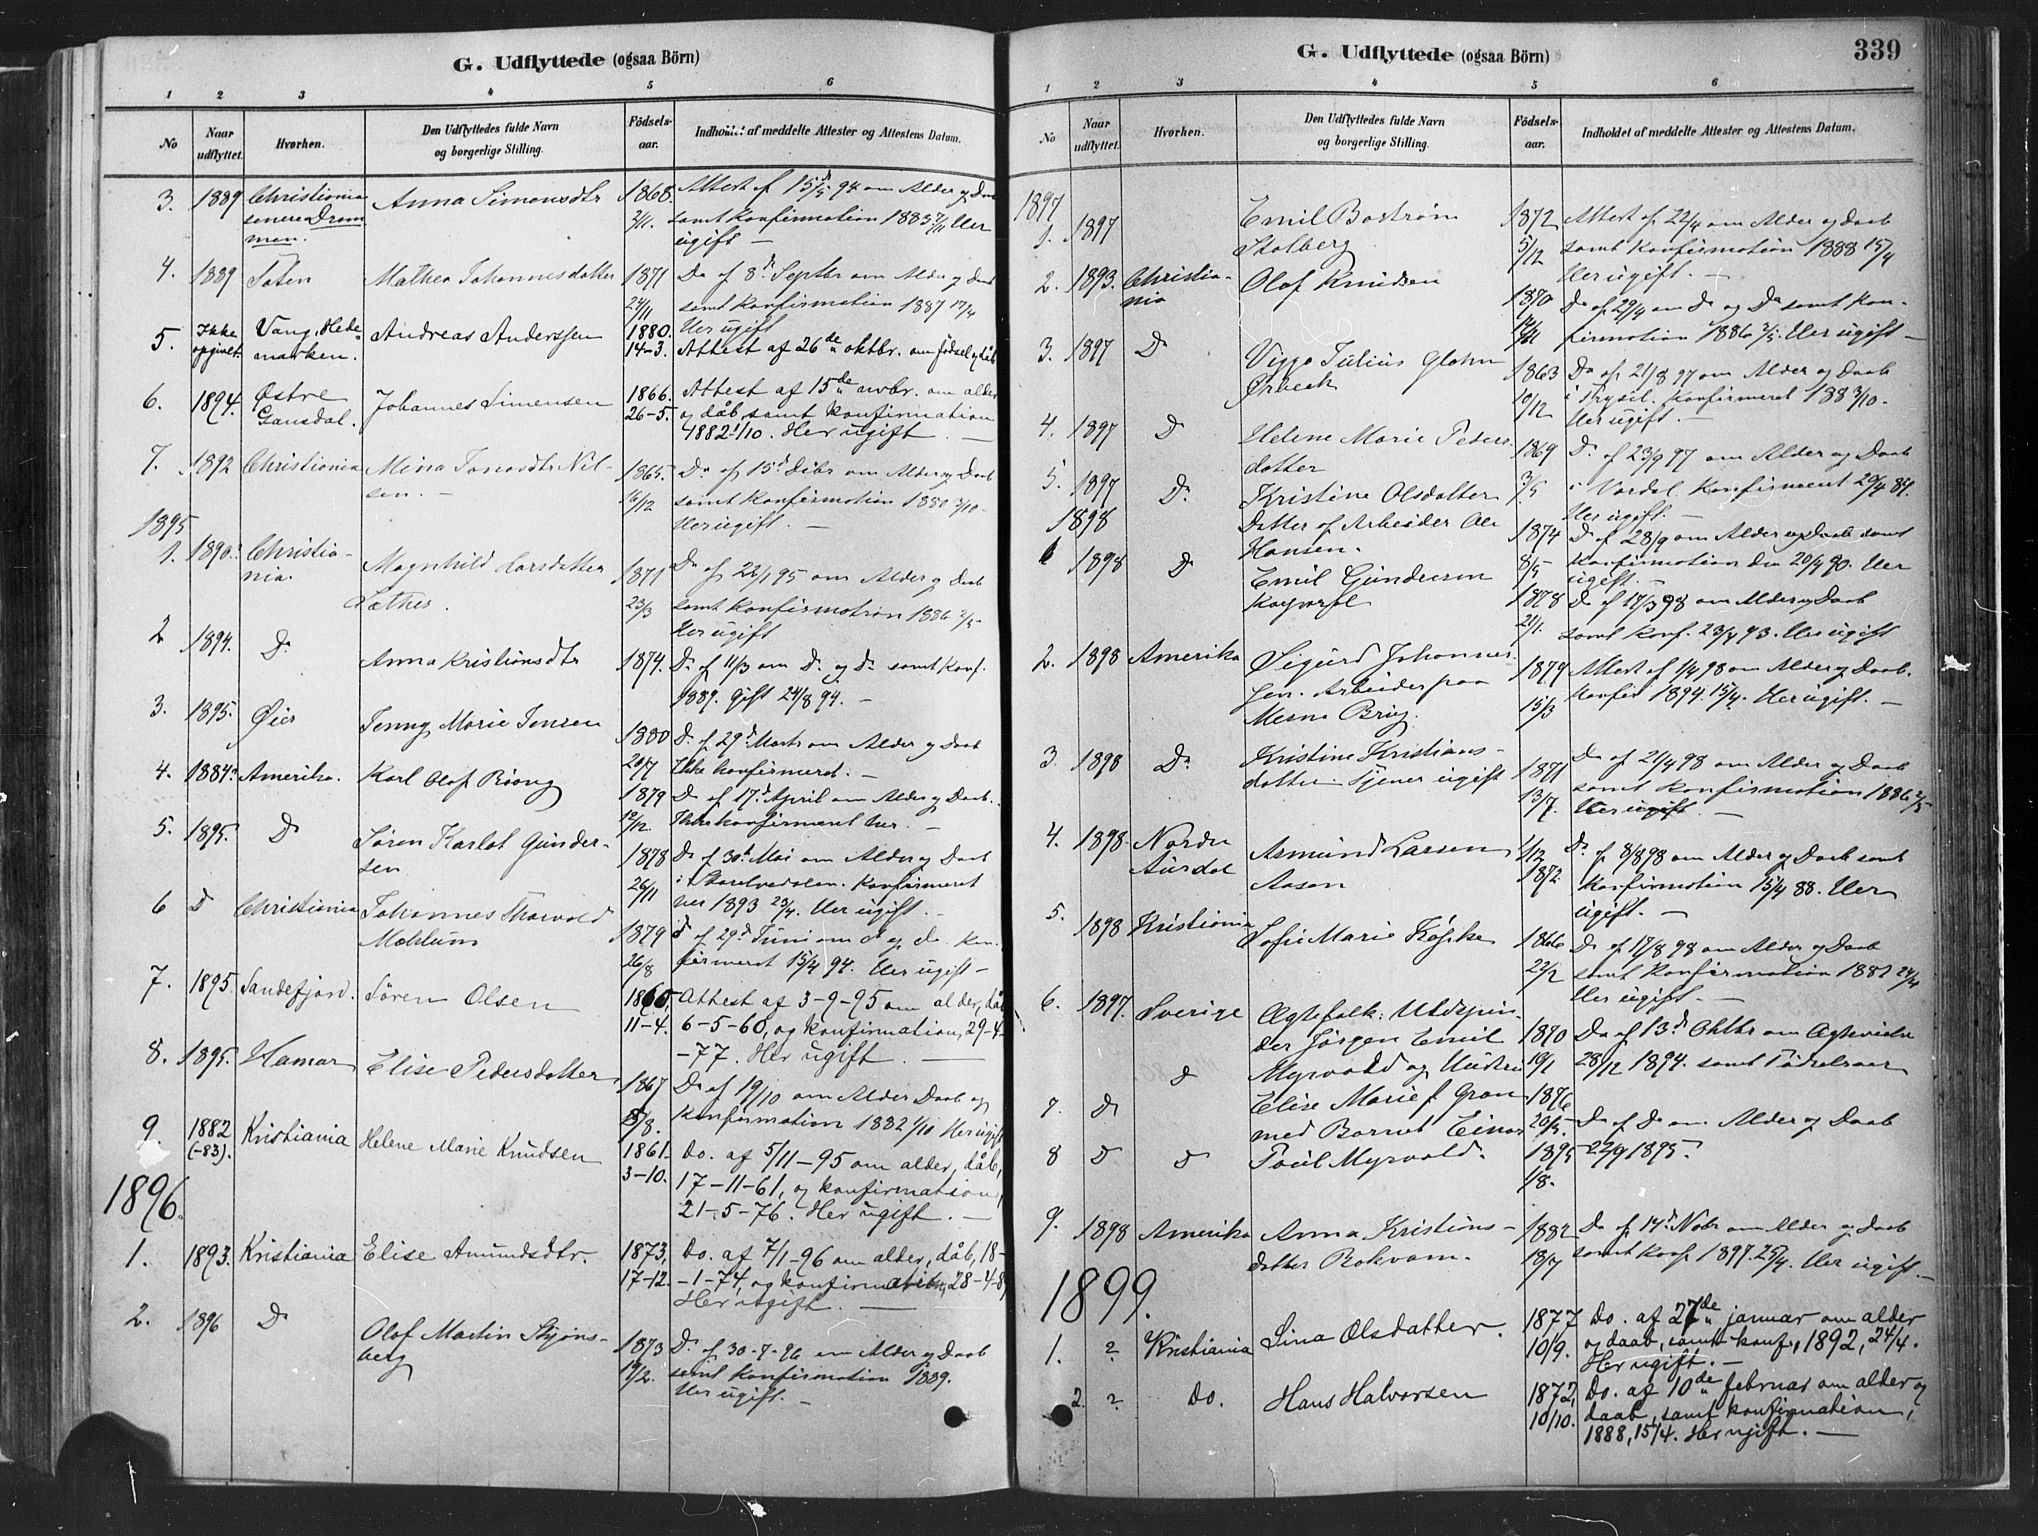 G. Udflyttede (ogsaa Börn)
1 2 3 4 5 6
No Naar udflyttet. Hvorhen. Den Udflyttedes fulde Navn og borgerlige Stilling. Födsels-aar. Indholdet af meddelte Attester og Attestens Datum.
3. 1889 Christiania Anna Simonsdtr 1868. Attest af 15/5 94 om Alder og Daab
senere Dram- 2/11. samt Konfirmation 1883 7/11 Uer
men. ugift —
4. 1889 Toten Mathea Johannesdatter 1871 Do af 8d Septbr om Alder og Daab
24/11 samt Konfirmation 1887 17/4
Uer ugift
5. Ikke Vang, Hede- Andreas Anderssen 1880.
opgivet. marken. 14-3. Attest af 26de oktbr. om fødsel og dåb
6. 1894. Østre Johannes Simensen 1866. Attest af 15de novbr. om alder
Gausdal. 26-5. og dåb, samt konfirmation
1882 1/10. Her ugift. —
7. 1892 Christiania Mina Nil- 1865. Do af 15d Debr om Alder og Daab
sen. — 16/12 samt Konfirmation 1880 3/10
Uer ugift. —
1895
1. 1890. Christia- Magnhild Larsdatter 1871 Do af 22/1 95 om Alder og Daab
nia. Sæther. 23/3 samt Konfirmation 1886 2/5
Uer ugift
2 1894. Do Anna Kristiansdtr 1874. Do af 11/3 om Do og Do samt Konf.
1889. Gift 24/8 94. —
3. 1895. Øier Jenny Marie Jensen 1880 Do af 29d Marts om Alder og Daab
20/7 Ikke konfirmeret. —
4. 1884? Amerika. Karl Olof Röong 1879 Do af 17d April om Alder og Daab.
12/12. Ikke konfirmeret her. —
5. 1895. Do Søren Karlot Gunder- 1878 Do af 30d Mai om Alder og Daab
sen 26/11 i Konfirmeret
her 1893 23/4. Uer ugift. —
6 Do Christiania Johannes Thorvald 1879 Do af 29d Juni om do og do. Kon-
Mæhlum 26/8 firmeret 15/4 94. Uer ugift —
7. 1895. Sandefjord. Søren Olsen 1860, Attest af 3-9-95 om alder, dåb
11-4. 6-5-60, og konfirmation, 29-4-
-77. Her ugift. —
8. 1895. Hamar Elise Pedersdatter 1867 Do af 19/10 om Alder Daab og
/8. Konfirmation 1882 1/10 Uer ugift
9. 1882 Kristiania Helene Marie Knudsen 1861. Do. af 5/11-95 om alder, dåb,
(-83). 3-10. 17-11-61, og konfirmation,
21-5-76. Her ugift. —
1896.
1. 1893. Kristiania Elise Amundsdtr. 1873, Do. af 7/1-96 om alder, dåb, 18-
17-12. -1-74, og konfirmation, 28-4-89
Her ugift. —
2. 1896 Do Olof Martin Skjøns- 1873 Do af 30-7-96 om Alder og Daab
berg 19/2. samt Konfirmation 1889.
Uer ugift. —
G. Udflyttede (ogsaa Börn) 339
1 2 3 4 5 6
No Naar udflyttet. Hvorhen. Den Udflyttedes fulde Navn og borgerlige Stilling. Födsels-aar. Indholdet af meddelte Attester og Attestens Datum.
1897
1. 1897 Emil Bostrøm 1872 Attest af 22/4 om Alder og Daab
Stolberg 5/12 samt Konfirmation 1888 15/4
Uer ugift. —
2. 1893. Christia- Olaf Knudsen 1870 Do af 29/4 om Do og Do samt Kon-
nia /11 firmation 1886 2/5. Uer ugift —
3. 1897 Do Viggo Julius Glahn 1863 Do af 21/8 97 om Alder og Daab
Ørbeck 10/12 i Trysil. Konfirmeret 188 3/10.
Uer ugift. —
4. 1897 Do Helene Marie Peders- 1869 Do af 23/9 97 om Alder og Daab
datter 3/5 i Vardal. Konfirmeret 29/4 84.
Uer ugift. —
5. 1897 Do. Kristine Olsdatter 1874 Do af 28/9 om Alder og Daab samt
Datter af Arbeider Ole 8/5 Konfirmation den 20/4 90. Uer
Hansen. ugift. —
1898
1 1898 Do Emil Gundersen 1878 Do af 17/3 98 om Alder og Daab
21/1. samt Konf. 23/4 93. Uer ugift
2. 1898 Amerika Sigurd Johannes- 1879 Attest af 1/4 98 om Alder og Daab.
sen. Arbeider paa 15/3 Konfir 1894. 15/4. Uer ugift. —
Mesna Brug.
3 1898 Do. Kristine Kristians- 1871 Do af 21/4 98 om Alder og Daab
datter Tjener ugift 13/7. samt Konfirmation 1886 2/5
Uer ugift. —
4. 1898 Nordre Asmund Larsen 1/12 Do af 8/8 98 om Alder og Daab samt
Aurdal Aasen 1872. Konfirmation 15/4 88. Uer
ugift. —
5. 1898 Kristiania Sofie Marie Köpke 1866 Do af 17/8 98 om Alder og Daab
22/2 samt Konfirmation 1881 24/4
Uer ugift. —
6. 1897. Sverige Ægtefolk:
der Jørgen Emil 1870 Do af 13d Oktbr om Ægtevielse
Myrvold og Hustru 19/1 28/12 1894. samt Fødselsaar
7 Do Do Elise Marie f. Gran 1876
med Barnet Einar 20/5. Do af Do om Alder og Daab
8 Do Do Poul Myrvold. 1895 22/9 1895.
1/8.
9. 1898 Amerika Anna Kristians- 1882 Do af 14d Nobr om Alder og Daab
datter Bakvam. 18/7 samt Konf. 1897. 25/4. Uer ugift. —
1899.
1. ? Kristiania Lina Olsdatter. 1877 Do. af 27de januar om alder
10/9. og daab, samt konf., 1892, 24/4.
Her ugift. —
2. ? Do. Hans Halvorsen 1872, Do. af 10de februar om alder og
10/10. daab, samt konfirmation,
1888, 15/4. Her ugift. —